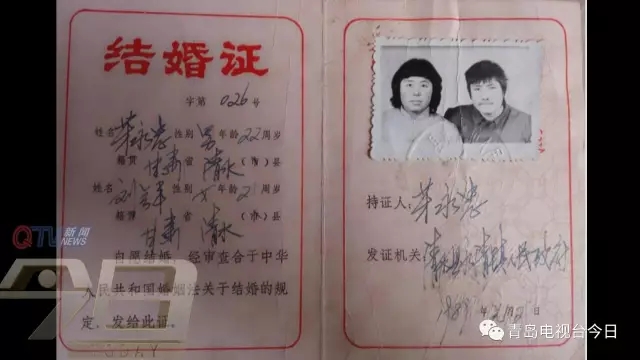 结婚证
字第 026 号
姓名 荣永忠 性别 男 年龄 22 周岁
籍贯 甘肃 省 清水 (市)县
姓名 性别 女 年龄 21 周岁
籍贯 甘肃 省 清水 (市)县
自愿结婚，经审查合于中华
人民共和国婚姻法关于结婚的规
定。发给此证。
持证人: 荣永忠
发证机关: 清水县 人民政府
年 月 日
QTV 新闻
NEWS
今日
青岛电视台今日